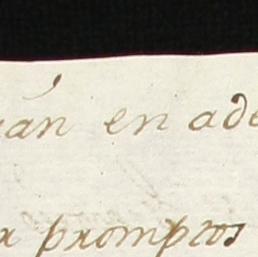 rán en ade
r promptos